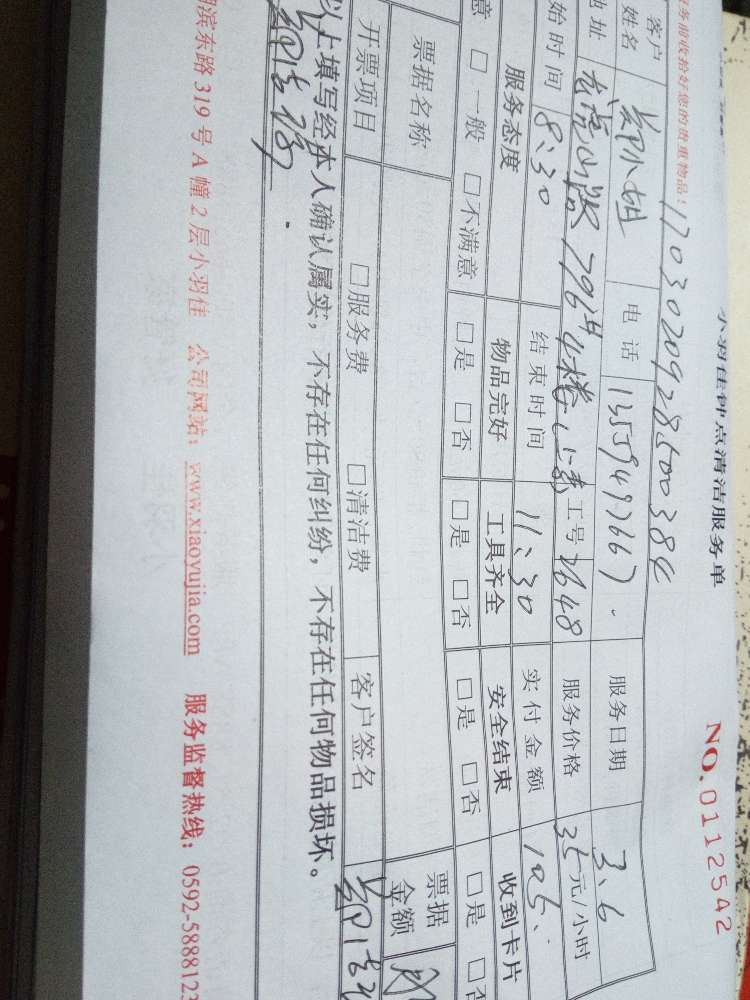 小羽佳钟点清洁服务单
NO.0112542
务前收拾好您的贵重物品!
170302092850038
客户姓名 郑小姐 电话 服务日期 3、6
地址 虎山路796号 工号 2648 服务价格 35元/小时
始时间 8:30 结束时间 11:30 实付金额 105.
服务态度 物品完好 工具齐全 安全结束 收到卡片
意 □一般 □不满意 □是 □否 □是 □否 □是 □否 □是 □否
票据名称 票据金额
开票项目 □服务费 □清洁费 客户签名
以上填写经本人确认属实,不存在任何纠纷,不存在任何物品损坏。
湖滨东路319号A幢2层小羽佳 公司网站:www.xiaoyujia.com 服务监督热线:0592-5888123